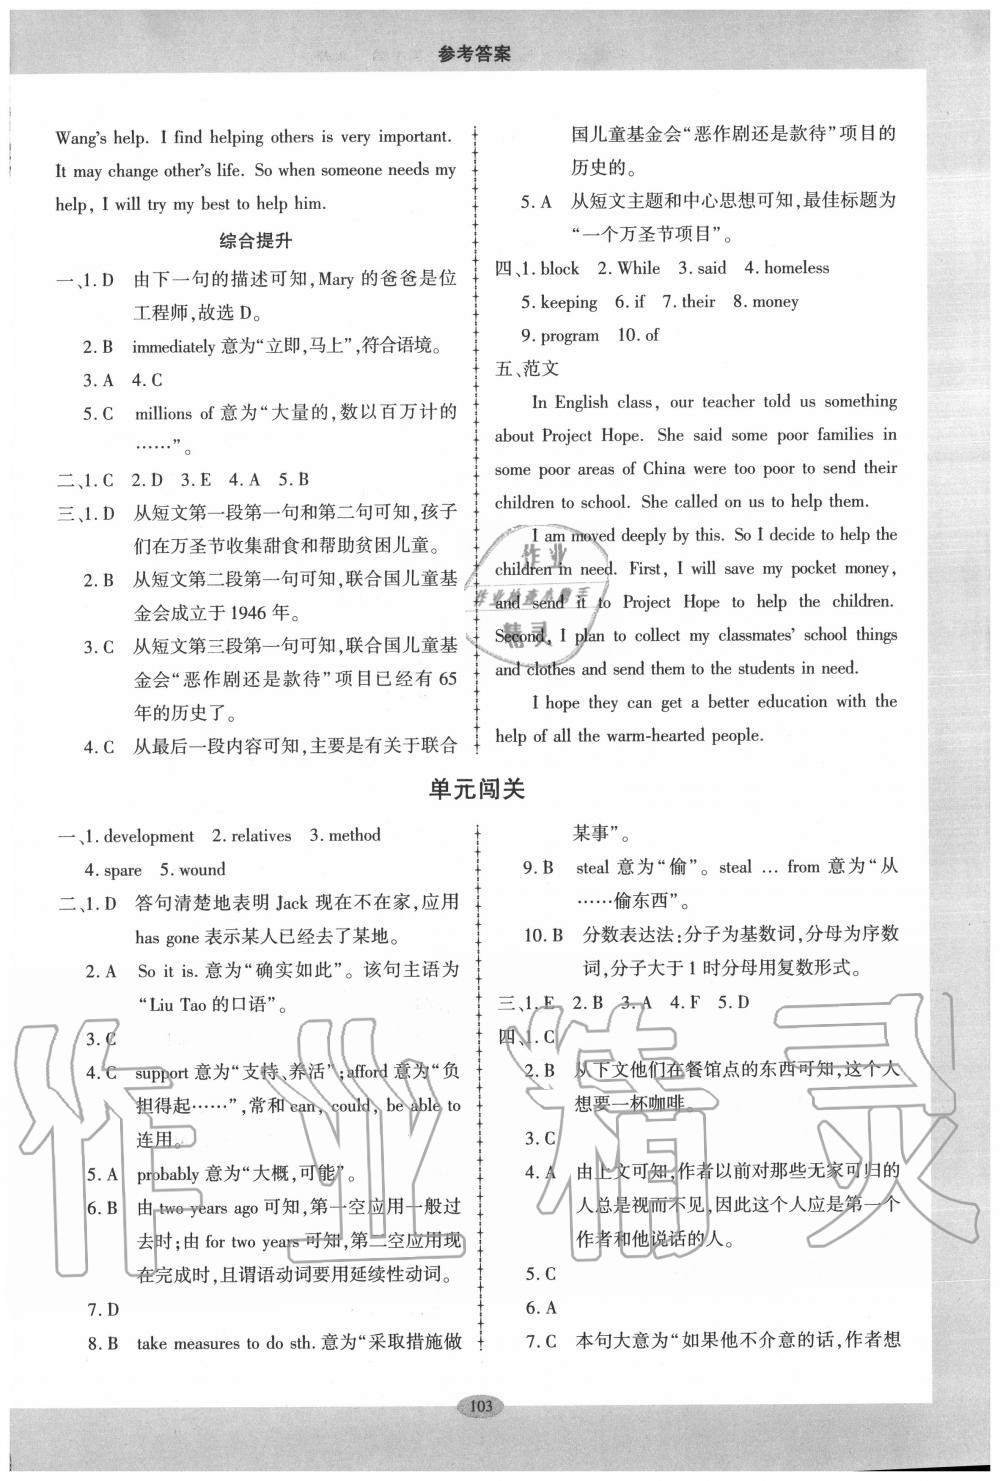 参考答案
Wang's help. I find helping others is very important.
It may change other's life. So when someone needs my
help, I will try my best to help him.
综合提升
一、1. D 由下一句的描述可知,Mary 的爸爸是位
工程师,故选 D。
2. B immediately 意为“立即,马上”,符合语境。
3. A 4. C
5. C millions of 意为“大量的,数以百万计的
……”。
二、1. C 2. D 3. E 4. A 5. B
三、1. D 从短文第一段第一句和第二句可知,孩子
们在万圣节收集甜食和帮助贫困儿童。
2. B 从短文第二段第一句可知,联合国儿童基
金会成立于 1946 年。
3. C 从短文第三段第一句可知,联合国儿童基
金会“恶作剧还是款待”项目已经有 65
年的历史了。
4. C 从最后一段内容可知,主要是有关于联合
国儿童基金会“恶作剧还是款待”项目的
历史的。
5. A 从短文主题和中心思想可知,最佳标题为
“一个万圣节项目”。
四、1. block 2. While 3. said 4. homeless
5. keeping 6. if 7. their 8. money
9. program 10. of
五、范文
In English class, our teacher told us something
about Project Hope. She said some poor families in
some poor areas of China were too poor to send their
children to school. She called on us to help them.
I am moved deeply by this. So I decide to help the
children in need. First, I will save my pocket money,
and send it to Project Hope to help the children.
Second, I plan to collect my classmates' school things
and clothes and send them to the students in need.
I hope they can get a better education with the
help of all the warm-hearted people.
作业
作业检查小帮手
精灵
单元闯关
一、1. development 2. relatives 3. method
4. spare 5. wound
二、1. D 答句清楚地表明 Jack 现在不在家,应用
has gone 表示某人已经去了某地。
2. A So it is. 意为“确实如此”。该句主语为
“Liu Tao 的口语”。
3. C
4. C support 意为“支持、养活”;afford 意为“负
担得起……”,常和 can, could, be able to
连用。
5. A probably 意为“大概,可能”。
6. B 由 two years ago 可知,第一空应用一般过
去时;由 for two years 可知,第二空应用现
在完成时,且谓语动词要用延续性动词。
7. D
8. B take measures to do sth. 意为“采取措施做
某事”。
9. B steal 意为“偷”。steal … from 意为“从
……偷东西”。
10. B 分数表达法:分子为基数词,分母为序数
词,分子大于 1 时分母用复数形式。
三、1. E 2. B 3. A 4. F 5. D
四、1. C
2. B 从下文他们在餐馆点的东西可知,这个人
想要一杯咖啡。
3. C
4. A 由上文可知,作者以前对那些无家可归的
人总是视而不见,因此这个人应是第一个
作者和他说话的人。
5. C
6. A
7. C 本句大意为“如果他不介意的话,作者想
作业精灵
103